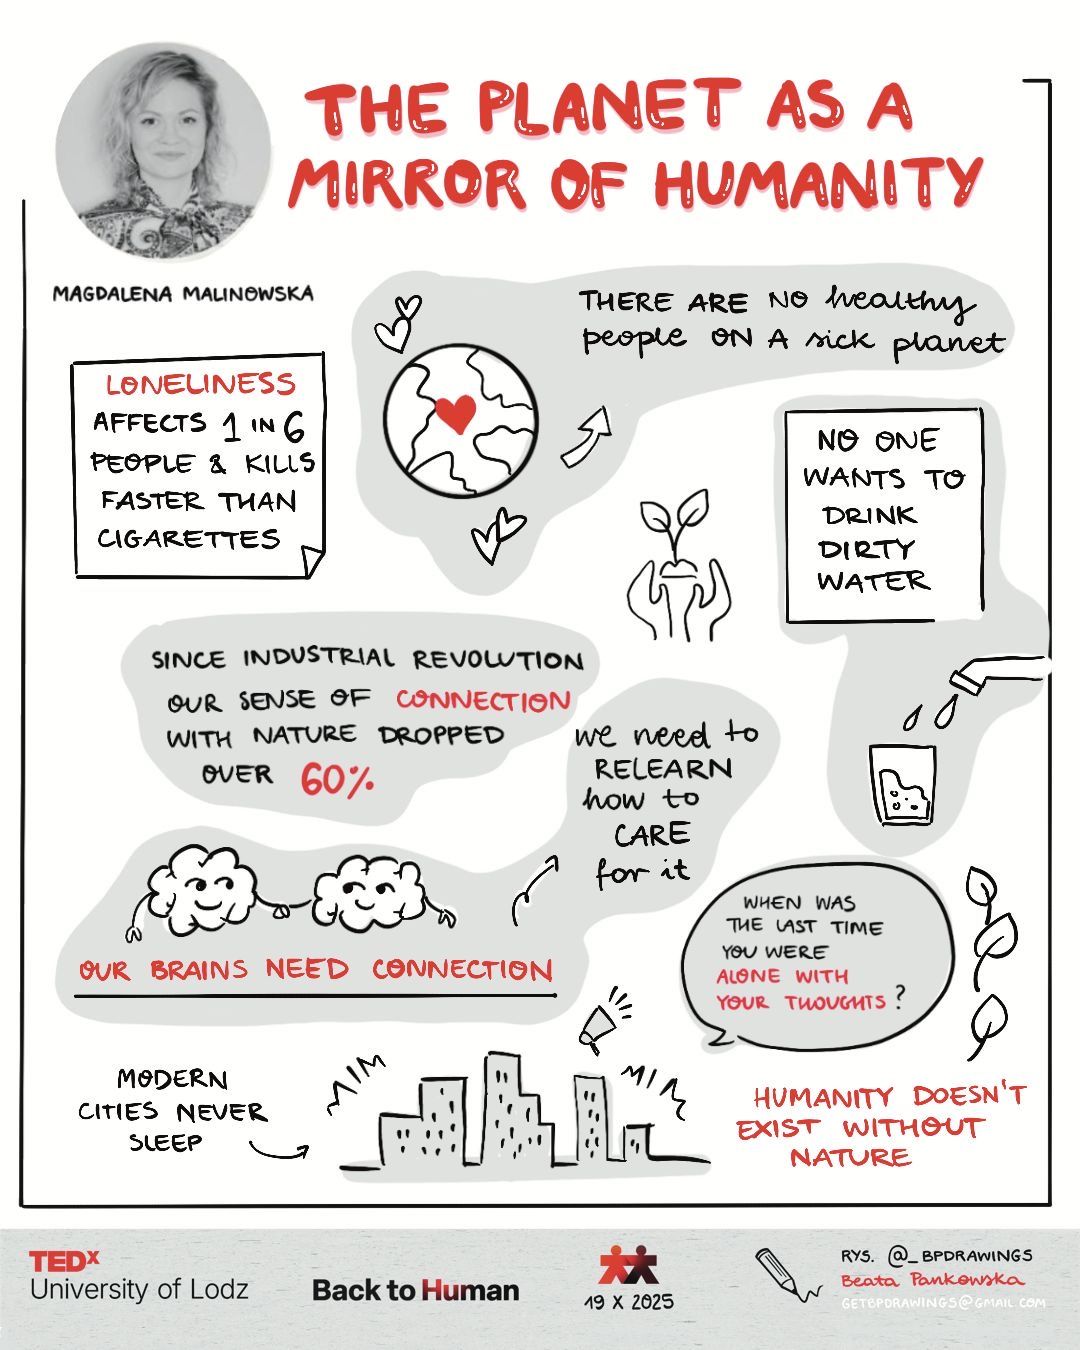 THE PLANET AS A
MIRROR OF HUMANITY
MAGDALENA MALINOWSKA
THERE ARE NO healthy
people ON A sick planet
LONELINESS
AFFECTS 1 IN 6
PEOPLE & KILLS
FASTER THAN
CIGARETTES
NO ONE
WANTS TO
DRINK
DIRTY
WATER
SINCE INDUSTRIAL REVOLUTION
OUR SENSE OF CONNECTION
WITH NATURE DROPPED
OVER 60%
we need to
RELEARN
how to
CARE
for it
OUR BRAINS NEED CONNECTION
WHEN WAS
THE LAST TIME
YOU WERE
ALONE WITH
YOUR THOUGHTS?
MODERN
CITIES NEVER
SLEEP
HUMANITY DOESN'T
EXIST WITHOUT
NATURE
TEDx
University of Lodz
Back to Human
19 X 2025
RYS. @_BPDRAWINGS
Beata Pankowska
GETBPDRAWINGS@GMAIL.COM